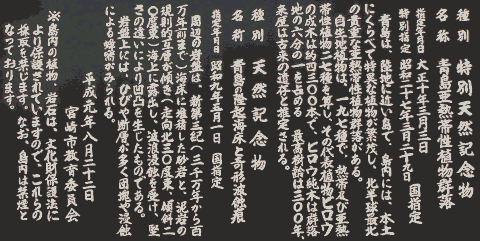 種別　特別天然記念物
名称　青島亜熱帯性植物群落
指定年月日　大正十年三月三日　国指定
特別指定　昭和二十七年三月二十九日
青島は、陸地に近い島で、ここには、本土
にくらべて特異な植物が繁茂し、北半球最北
の貴重な亜熱帯性植物群落がある。
自生地植物は、一九七種で、熱帯及び亜熱
帯性植物二七種を算し、その代表植物ビロウ
の成木は約四三〇〇本で、ビロウ純木は群落
地の六分の一を占める　最高樹齢は三〇〇年、
来歴は古来の遺存と推定される。
種別　天然記念物
名称　青島の隆起海床と奇形波蝕痕
指定年月日　昭和九年五月一日　国指定
周辺の岩盤は、新第三紀（三千万年から百
万年前まで）海床に堆積した砂岩と、泥岩の
規則的互層が傾き（走向北三〇度東、傾斜二
〇度東）海上に露出し、波浪浸蝕を受け、堅
さの違いにより凹凸を生じたものである。
岩盤上には、ひびや断層の多く団塊や波蝕
による蜂窩がある。
平成元年八月二十二日
宮崎市教育委員会
※島内の植物・岩石は、文化財保護法に
より保護されていますので、これらの
採取を禁じます。なお、島内は禁煙と
なっております。